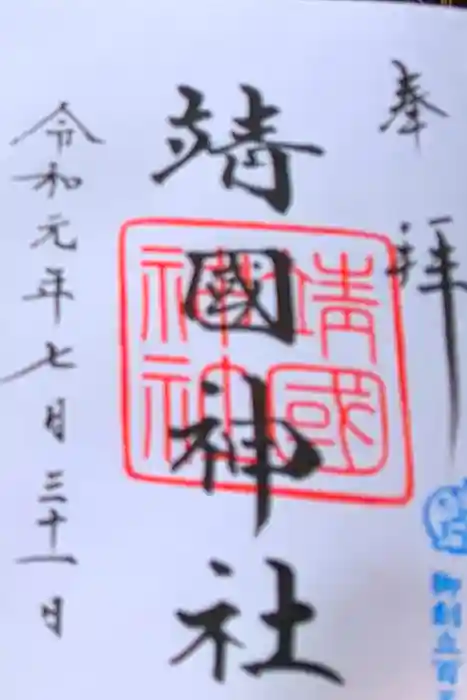 奉拝
靖國神社
靖國神社
令和元年七月三十一日